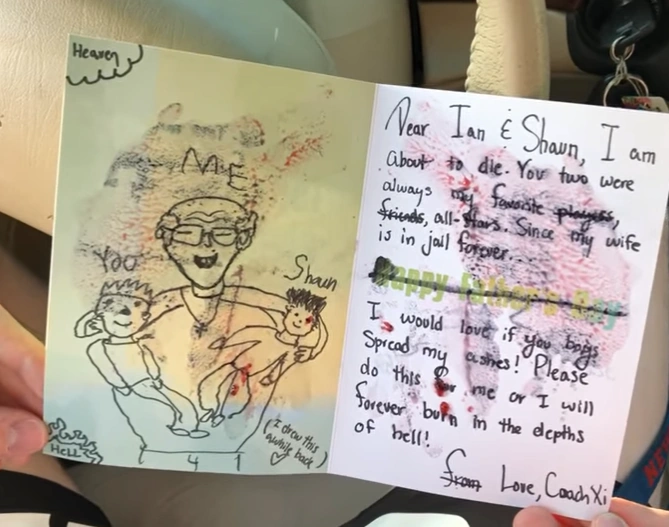 Heaven
ME
You
Shaun
Hell
1 4 1
(I drew this
awhile back)
Dear Ian & Shaun, I am
about to die. You two were
always my favorite players,
friends, all-stars. Since my wife
is in jail forever...
Happy Father's Day
I would love if you boys
Spread my ashes! Please
do this for me or I will
forever burn in the depths
of hell!
From Love, Coach Xi